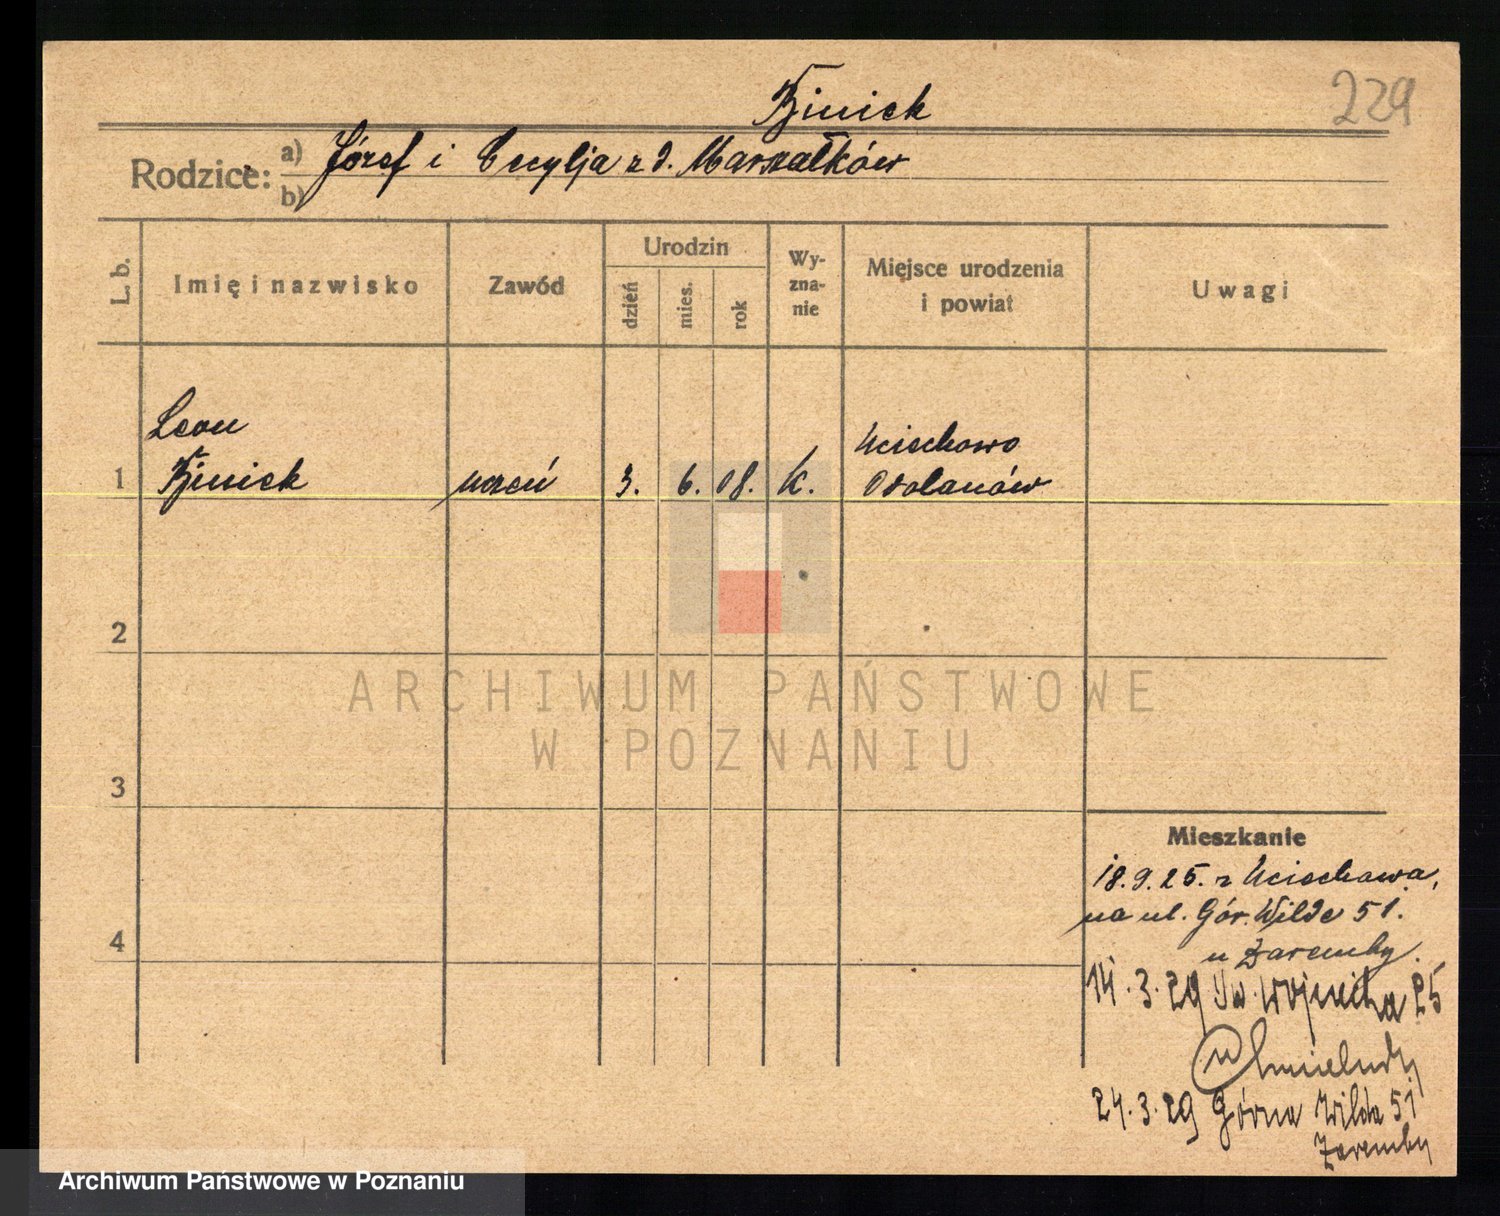 229
Binick
Rodzice: a) Józef i Cecylja z d. Marszałków
b)
L. b. Imię i nazwisko Zawód Urodzin dzień mies. rok Wy-zna-nie Miejsce urodzenia i powiat Uwagi
Leon Uciechowo
1 Binick uczeń 3. 6. 08. k. Odolanów
2
ARCHIWUM PAŃSTWOWE
W POZNANIU
3
Mieszkanie
18.9.25. z Uciechowa,
na ul. Gór. Wilde 51.
u Zaremby.
4
14.3.29 Św. Wojciecha 25
u
24.3.29 Górna Wilda 51
Zaremby
Archiwum Państwowe w Poznaniu